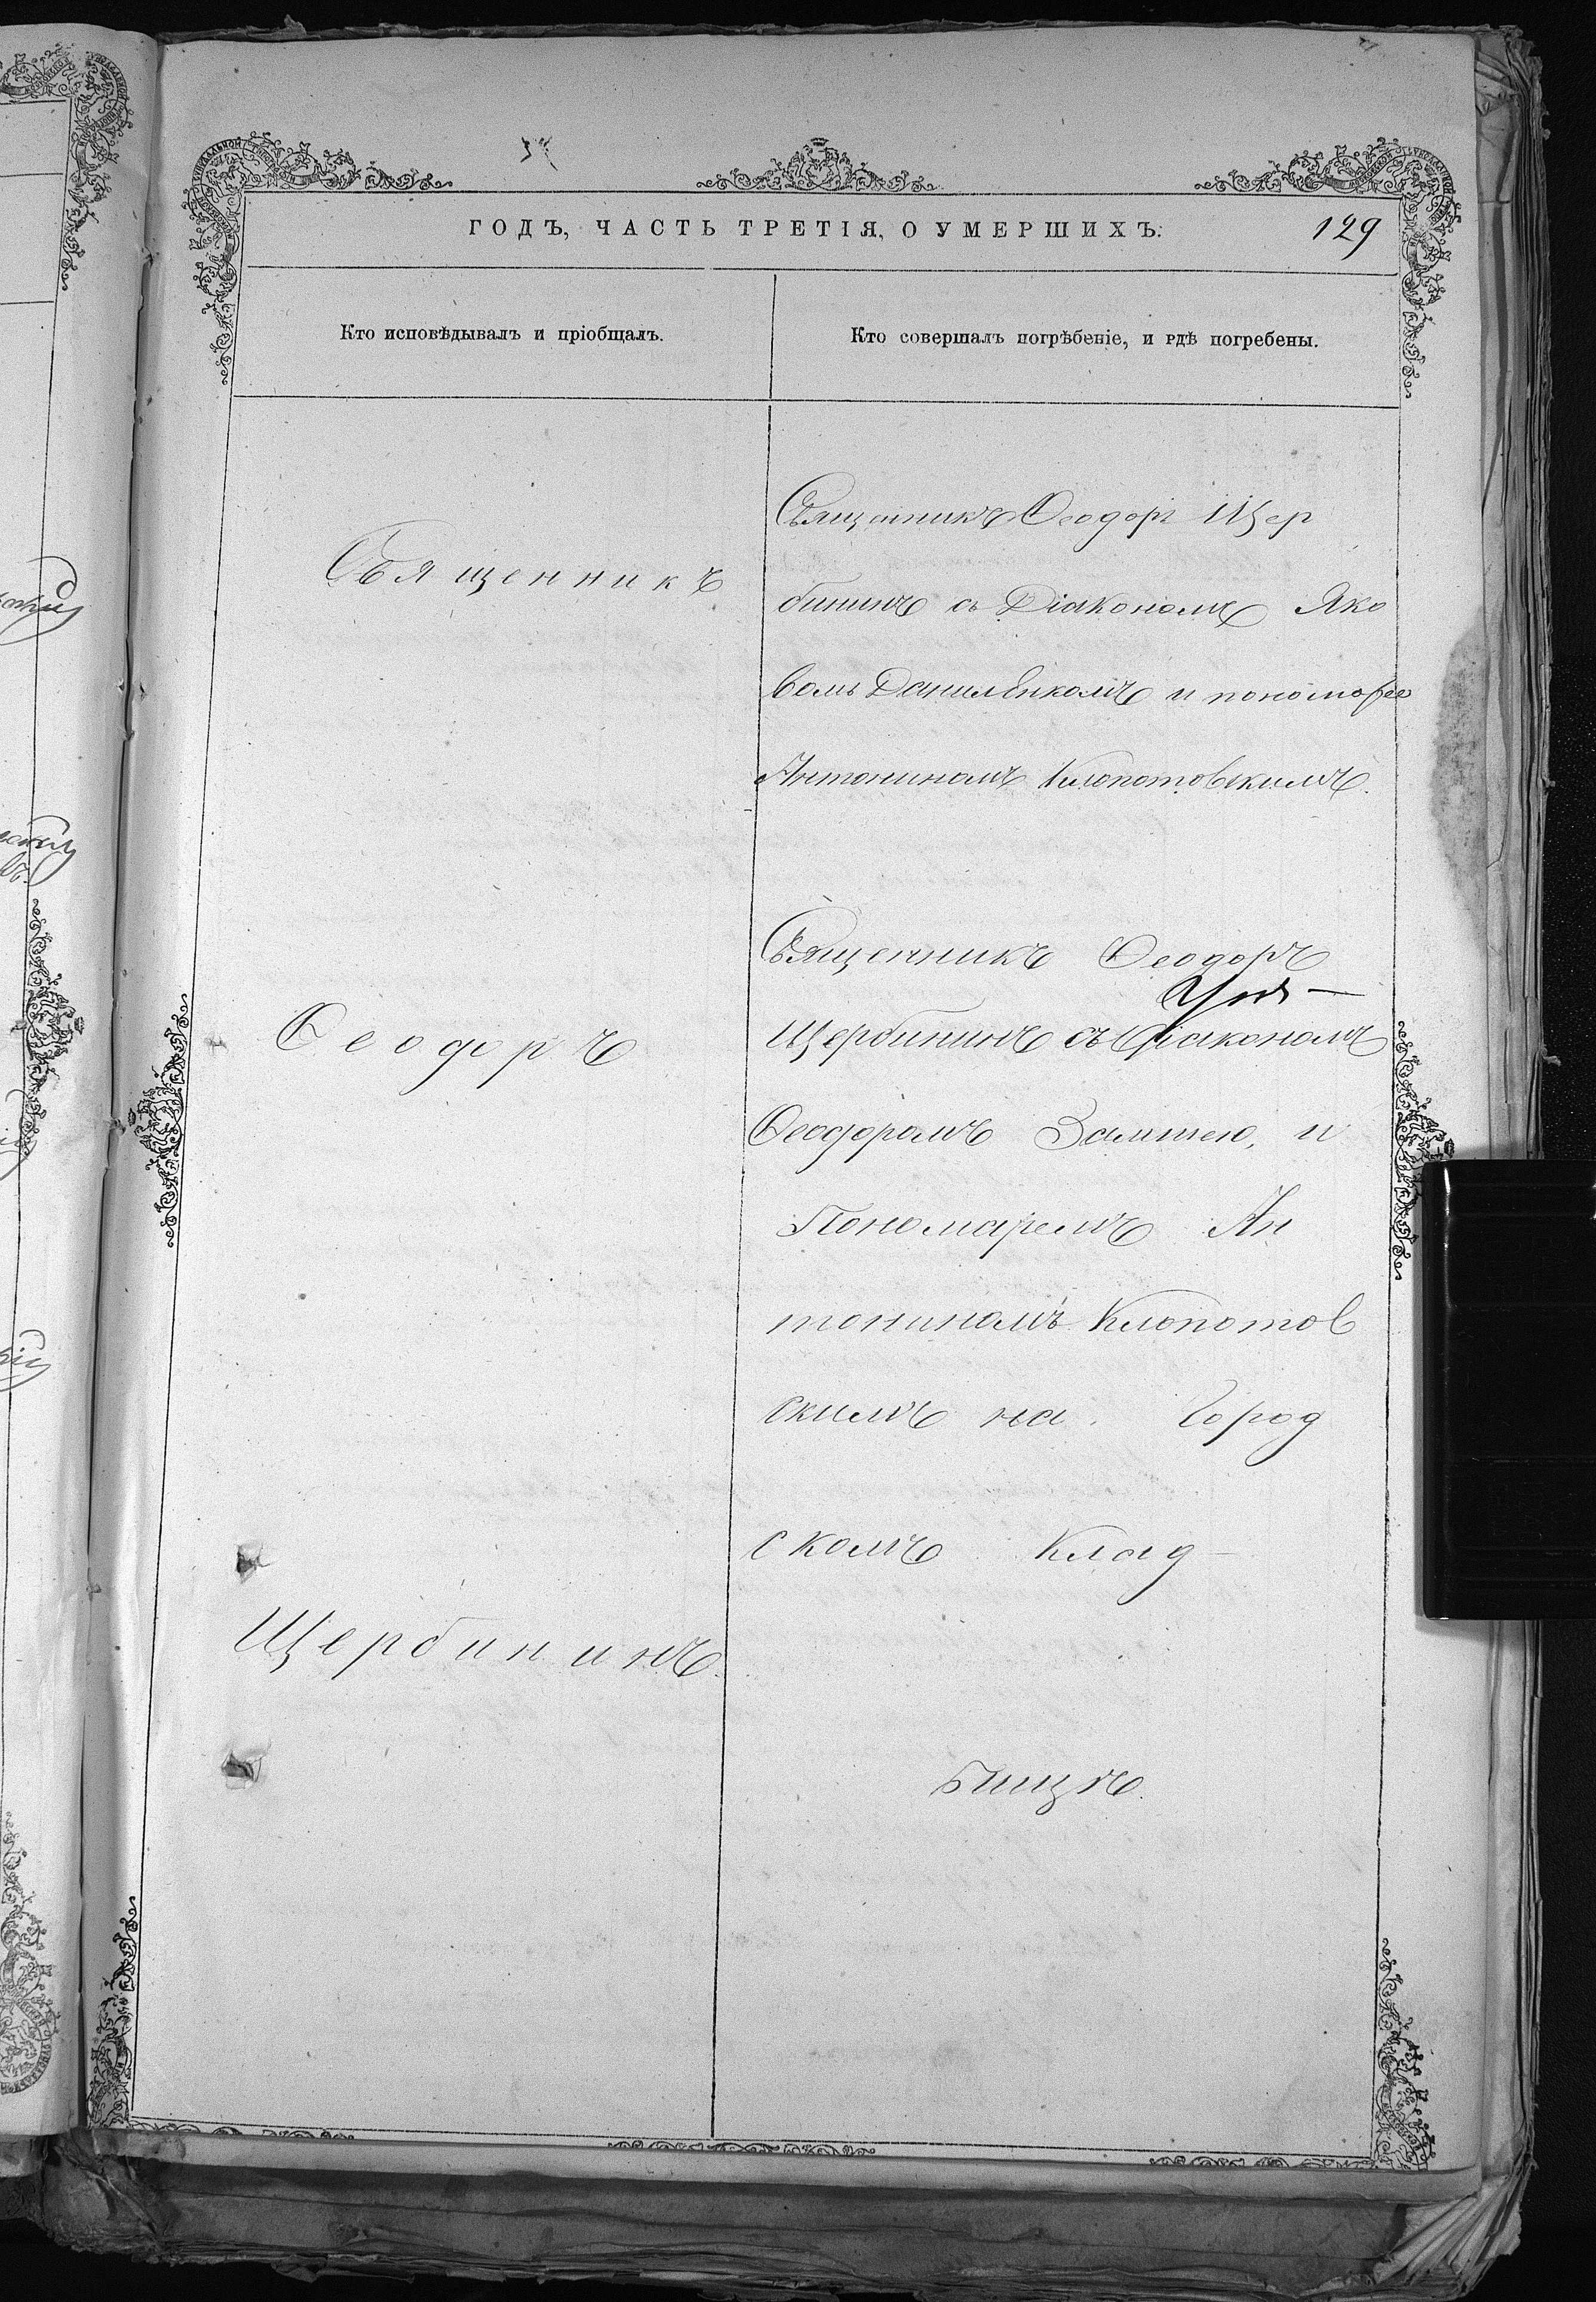 ГОДЪ, ЧАСТЬ ТРЕТІЯ, О УМЕРШИХЪ.
129
Кто исповѣдывалъ и пріобщалъ.
Кто совершалъ погрѣбеніе, и гдѣ погребены.
Священникъ
Ѳеодоръ
Щербининъ.
Священникъ Ѳеодоръ Щер
бининъ съ Діакономъ Яко
вомъ Данильѣкомъ и пономоре
Антониномъ Клопотовскимъ.
Священникъ Ѳеодоръ
Щербининъ съ Діакономъ
Ѳеодоромъ Залитею, и
Пономаремъ Ан
тониномъ Клопотов
скимъ на Город
скомъ Клад-
бищѣ.